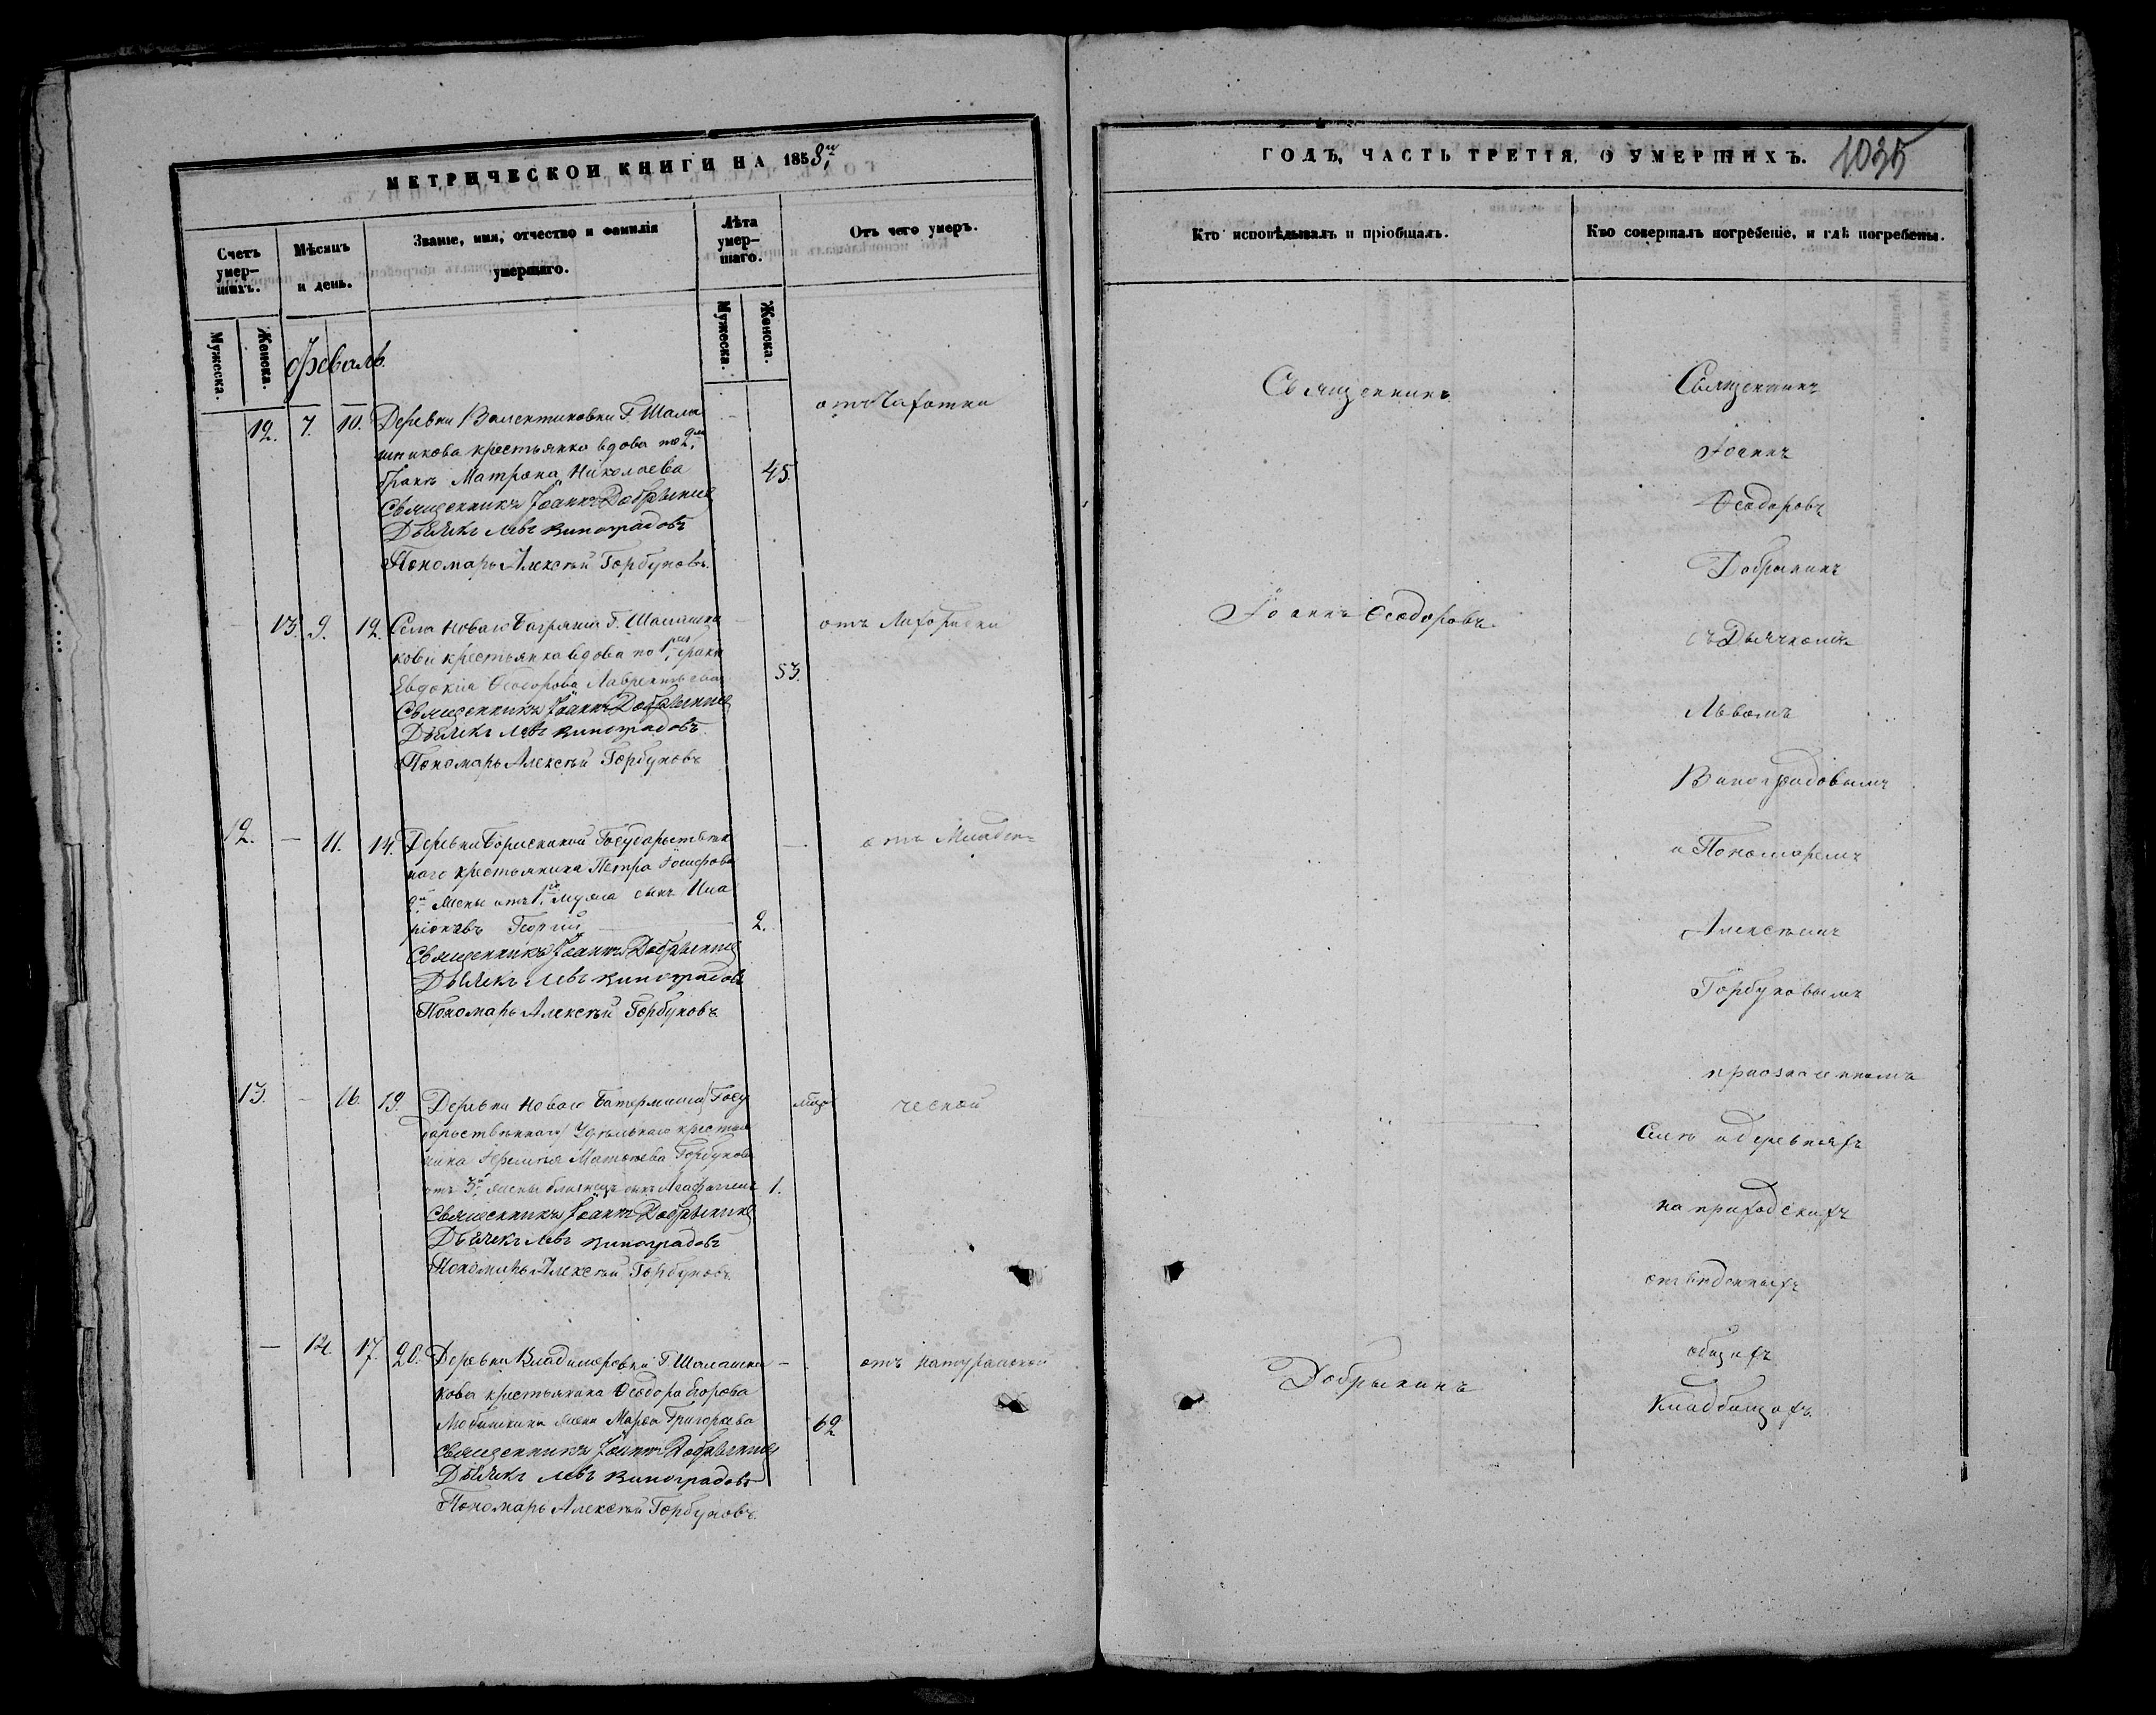 МЕТРИЧЕСКОЙ КНИГИ НА 1858й
Счетъ умер-шихъ.
Мѣсяцъ и день.
Званіе, имя, отчество и фамилія умершаго.
Лѣта умер-шаго.
Отъ чего умеръ.
Мужеска.
Женска.
Мужеска.
Женска.
Февраль.
12. 7. 10. Деревни Валентиновки Г. Шала
шникова крестьянка вдова по 2му
браку Матрона Николаева 45.
отъ Чахотки
Священникъ Іоаннъ Добрынинъ
Дьячекъ Левъ Виноградовъ
Пономарь Алексѣй Горбуновъ.
13. 9. 12. Села Новаго Г. Шалашни
кова крестьянка вдова по 1му браку
Евдокія Ѳеодорова Лаврентьева 53.
отъ Лихорадки
Священникъ Іоаннъ Добрынинъ
Дьячекъ Левъ Виноградовъ
Пономарь Алексѣй Горбуновъ
12. — 11. 14. Деревни Государствен
наго крестьянина Петра
2й жены отъ 1го мужа сынъ Ила
ріоновъ Георгій 2.
отъ Младен=
Священникъ Іоаннъ Добрынинъ
Дьячекъ Левъ Виноградовъ
Пономарь Алексѣй Горбуновъ
13. — 16. 19. Деревни Новаго (Госу
дарственнаго) Удѣльнаго крестья
нина Матвѣева Горбунова
отъ 3й жены близнецъ сынъ 1.
ческой
Священникъ Іоаннъ Добрынинъ
Дьячекъ Левъ Виноградовъ
Пономарь Алексѣй Горбуновъ
— 14. 17. 20. Деревни Владимеровки Г. Шалашни
кова крестьянина Ѳеодора Егорова
жена Марѳа Григорьева 62
отъ натуральной
Священникъ Іоаннъ Добрынинъ
Дьячекъ Левъ Виноградовъ
Пономарь Алексѣй Горбуновъ.
ГОДЪ, ЧАСТЬ ТРЕТІЯ, О УМЕРШИХЪ.
1035
Кто исповѣдывалъ и пріобщалъ.
Кто совершалъ погребеніе, и гдѣ погребены.
Священникъ
Іоаннъ Ѳеодоровъ
Добрынинъ
Священникъ
Іоаннъ
Ѳеодоровъ
Добрынинъ
съ Дьячкомъ
Львомъ
Виноградовымъ
и Пономаремъ
Алексѣемъ
Горбуновымъ
при означенномъ
селѣ и деревняхъ
на приходскихъ
отведенныхъ
общихъ
Кладбищахъ.